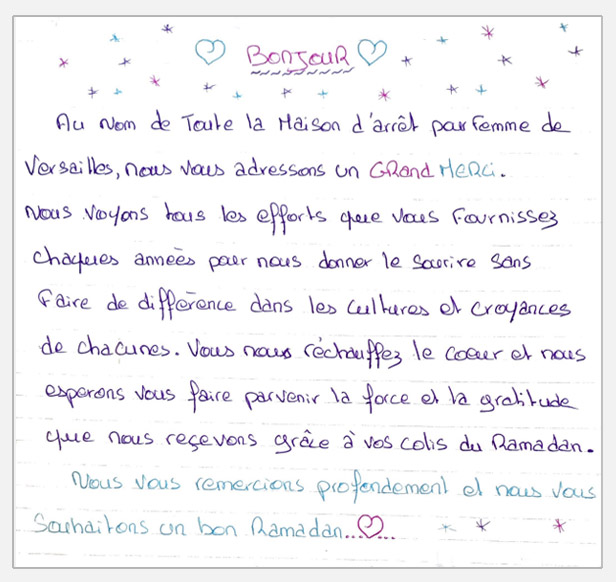 BONJOUR
Au Nom de Toute la Maison d'arrêt pour Femme de
Versailles, nous vous adressons un GRand MeRci.
Nous voyons tous les efforts que vous Fournissez
chaques années pour nous donner le sourire sans
Faire de différence dans les cultures et croyances
de chacunes. Vous nous réchauffez le coeur et nous
esperons vous faire parvenir la force et la gratitude
que nous reçevons grâce à vos colis du Ramadan.
Nous vous remercions profondement et nous vous
Souhaitons un bon Ramadan......